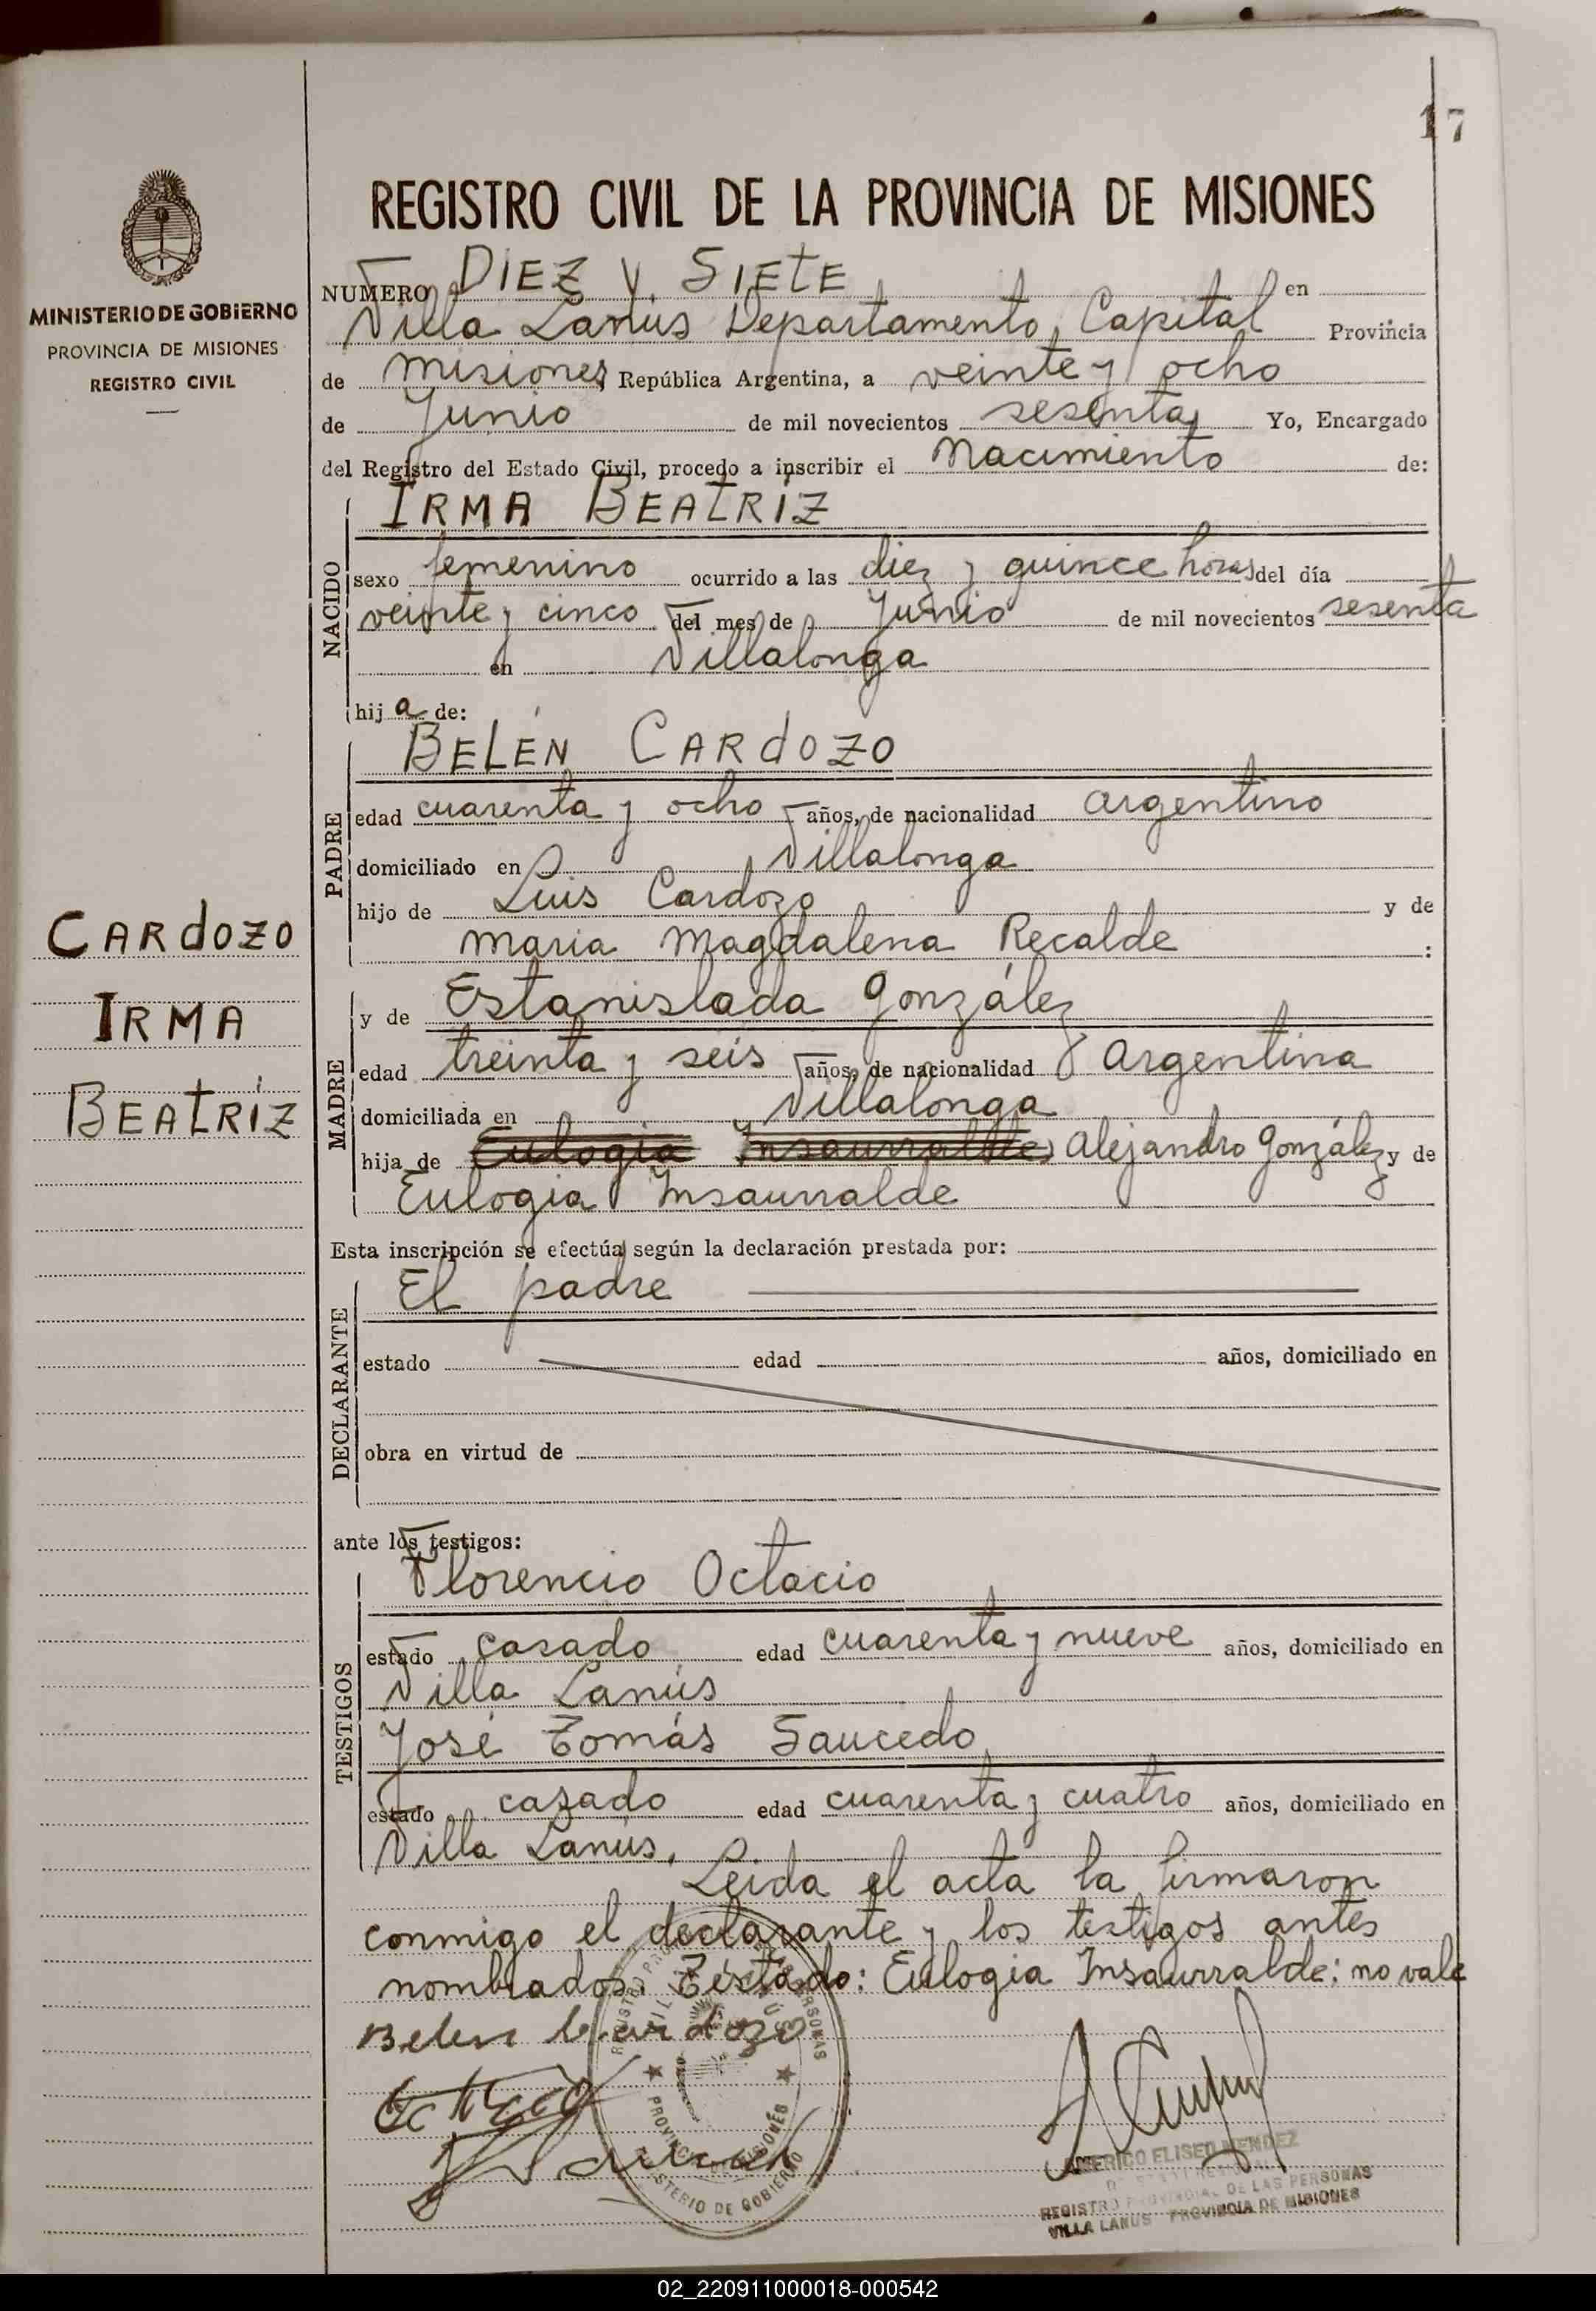 17
REGISTRO CIVIL DE LA PROVINCIA DE MISIONES
MINISTERIO DE GOBIERNO
PROVINCIA DE MISIONES
REGISTRO CIVIL
NUMERO DIEZ Y SIETE en
Villa Lanus Departamento Capital Provincia
de Misiones República Argentina, a veinte y ocho
de Junio de mil novecientos sesenta Yo, Encargado
del Registro del Estado Civil, procedo a inscribir el Nacimiento de:
NACIDO
IRMA BEATRIZ
sexo femenino ocurrido a las diez y quince horas del día
veinte y cinco del mes de Junio de mil novecientos sesenta
en Villalonga
hija de:
PADRE
BELÉN CARDOZO
edad cuarenta y ocho años, de nacionalidad argentino
domiciliado en Villalonga
hijo de Luis Cardozo y de
Maria Magdalena Recalde :
CARDOZO
IRMA
BEATRIZ
MADRE
y de Estanislada González
edad treinta y seis años, de nacionalidad Argentina
domiciliada en Villalonga
hija de Eulogia Insaurralde Alejandro González y de
Eulogia Insaurralde
Esta inscripción se efectúa según la declaración prestada por:
DECLARANTE
El padre
estado edad años, domiciliado en
obra en virtud de
ante los testigos:
TESTIGOS
Florencio Octacio
estado casado edad cuarenta y nueve años, domiciliado en
Villa Lanús
José Tomás Saucedo
estado casado edad cuarenta y cuatro años, domiciliado en
Villa Lanús.
Leida el acta la firmaron
conmigo el declarante y los testigos antes
nombrados. Testado: Eulogia Insaurralde: no vale
Belen Cardozo
PROVINCIA DE MISIONES
MINISTERIO DE GOBIERNO
AMERICO ELISEO MENDEZ
REGISTRO PROVINCIAL DE LAS PERSONAS
VILLA LANUS PROVINCIA DE MISIONES
02_220911000018-000542